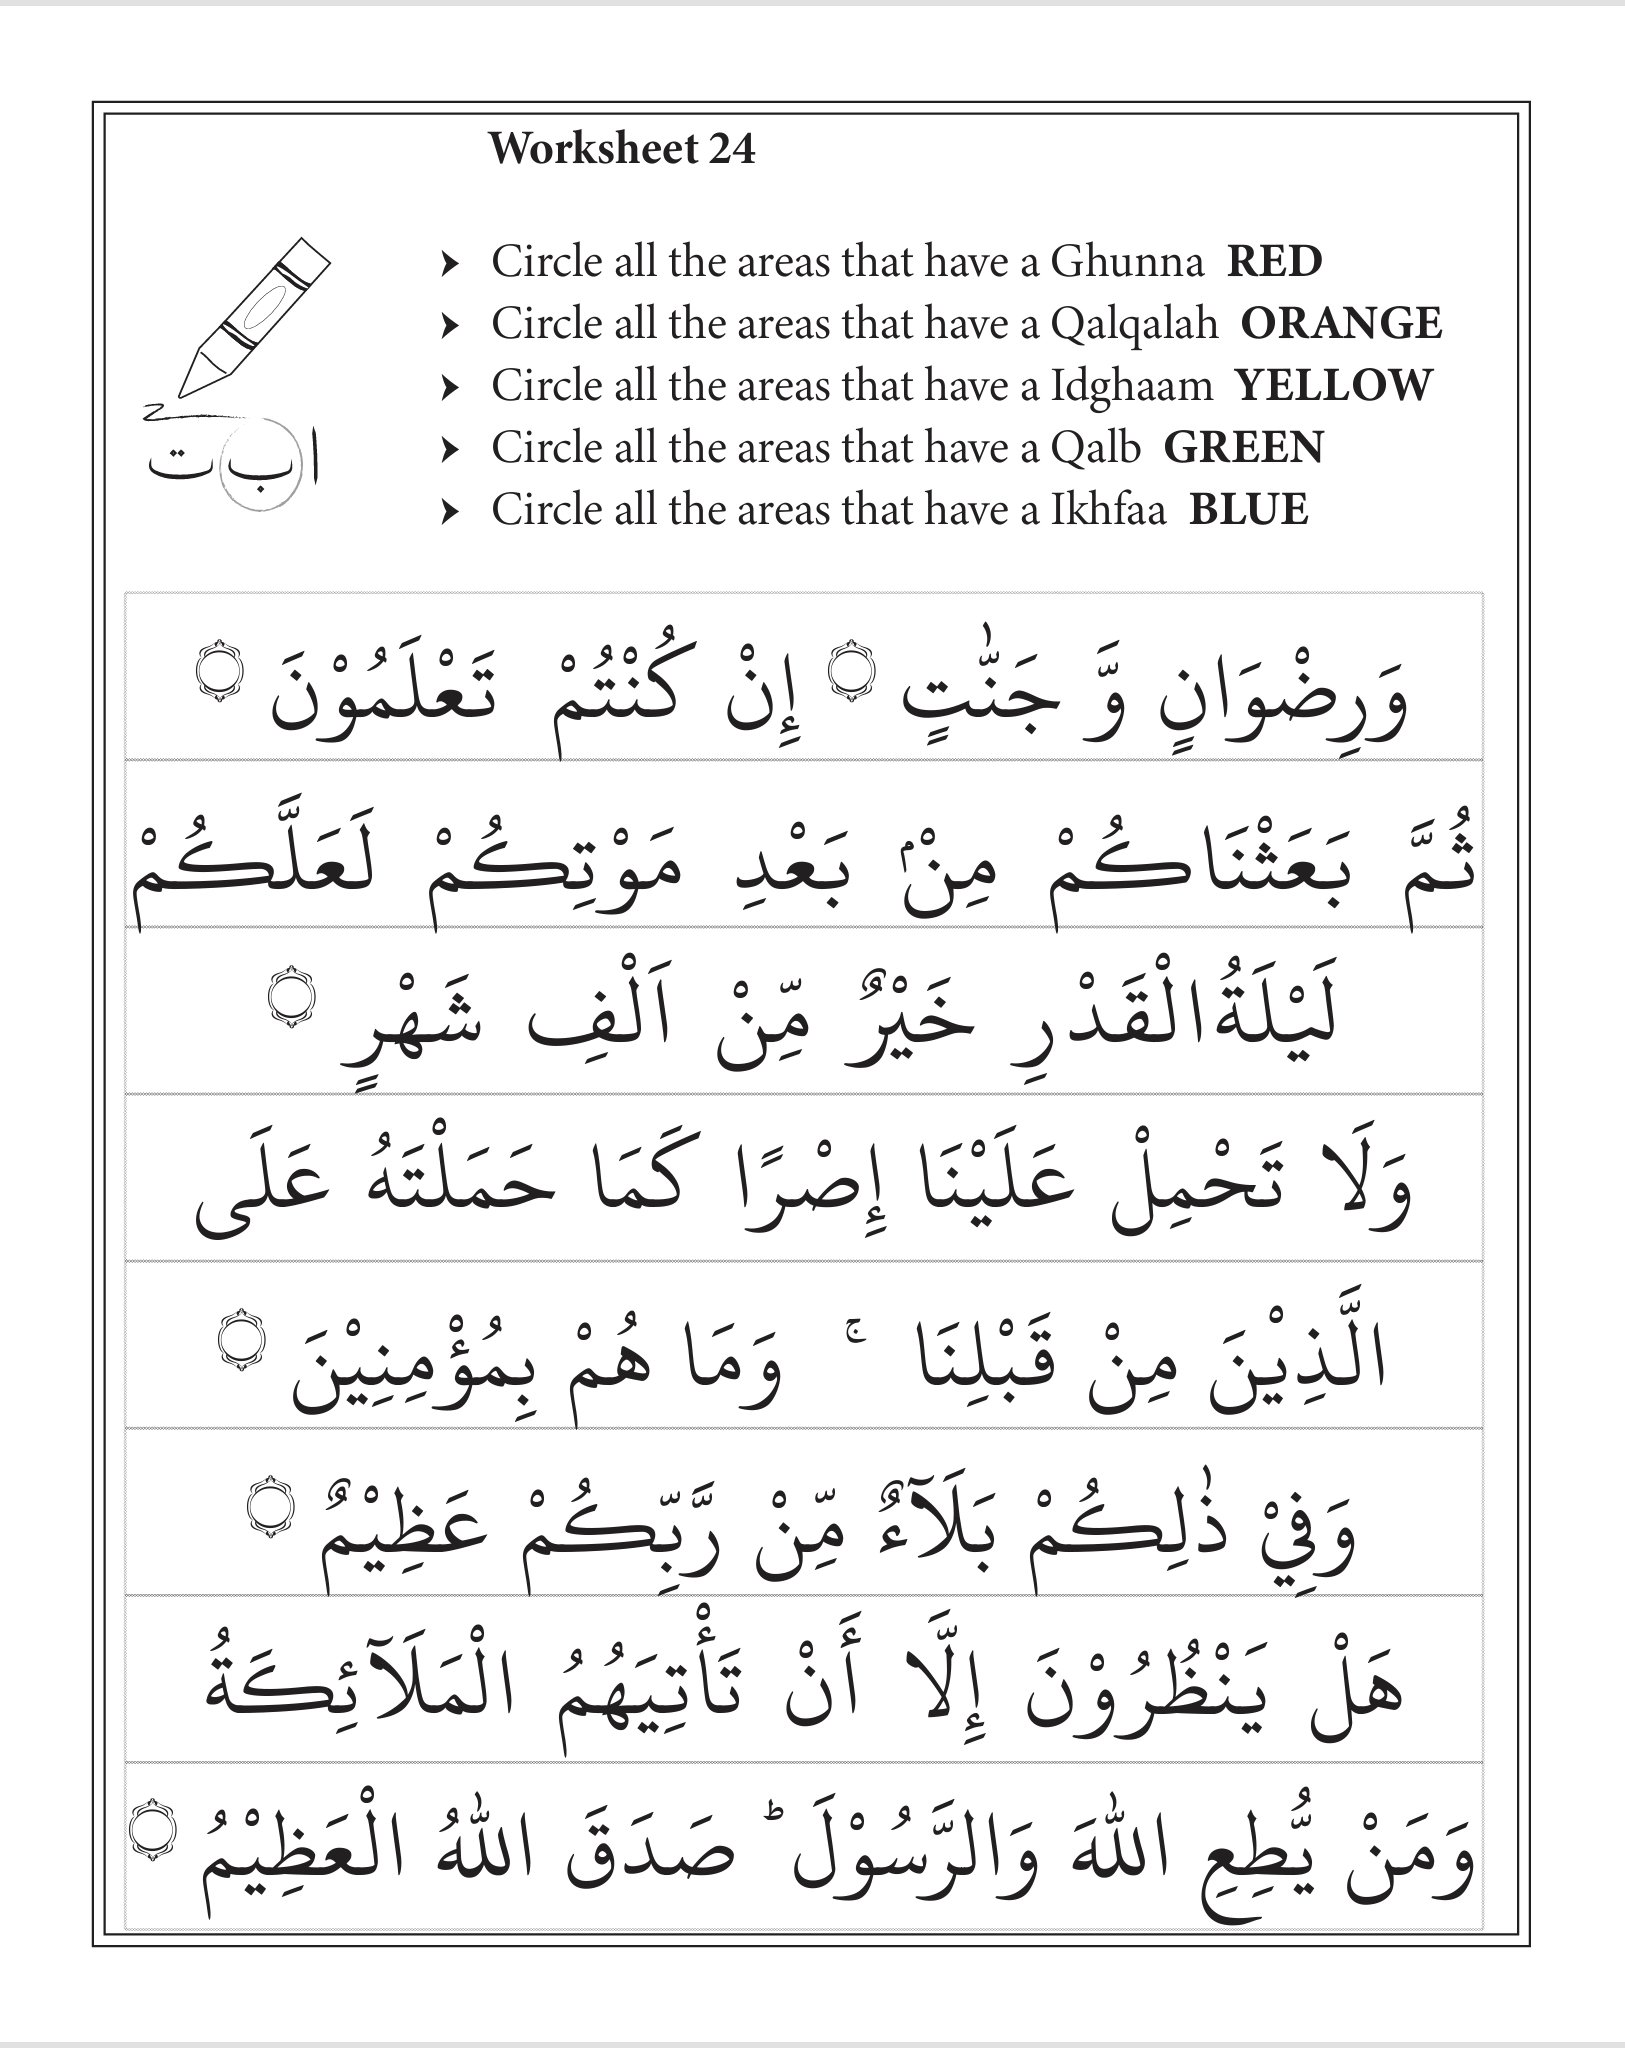 Worksheet 24
➤ Circle all the areas that have a Ghunna RED
➤ Circle all the areas that have a Qalqalah ORANGE
➤ Circle all the areas that have a Idghaam YELLOW
➤ Circle all the areas that have a Qalb GREEN
➤ Circle all the areas that have a Ikhfaa BLUE
ا ب ت
وَرِضْوَانٍ وَّ جَنّٰتٍ ۝ إِنْ كُنْتُمْ تَعْلَمُوْنَ ۝
ثُمَّ بَعَثْنَاكُمْ مِنْۢ بَعْدِ مَوْتِكُمْ لَعَلَّكُمْ
لَيْلَةُ الْقَدْرِ خَيْرٌ مِّنْ اَلْفِ شَهْرٍ ۝
وَلَا تَحْمِلْ عَلَيْنَا إِصْرًا كَمَا حَمَلْتَهُ عَلَى
الَّذِيْنَ مِنْ قَبْلِنَا ۚ وَمَا هُمْ بِمُؤْمِنِيْنَ ۝
وَفِيْ ذٰلِكُمْ بَلَآءٌ مِّنْ رَّبِّكُمْ عَظِيْمٌ ۝
هَلْ يَنْظُرُوْنَ إِلَّا أَنْ تَأْتِيَهُمُ الْمَلَآئِكَةُ
وَمَنْ يُّطِعِ اللّٰهَ وَالرَّسُوْلَ ؕ صَدَقَ اللّٰهُ الْعَظِيْمُ ۝